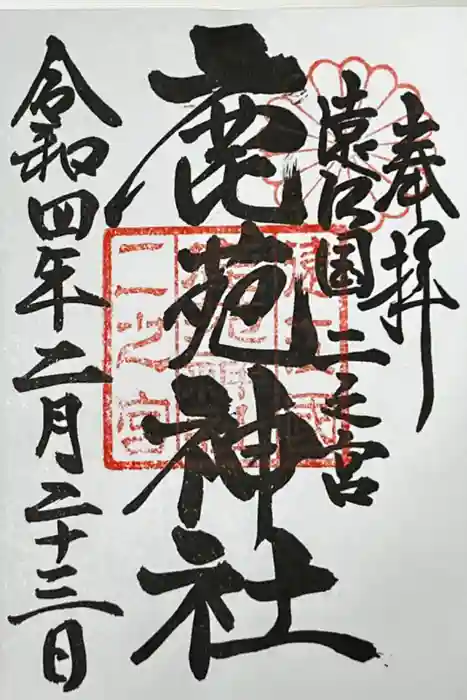 奉拝
遠江国二之宮
鹿苑神社
令和四年二月二十三日
二之宮